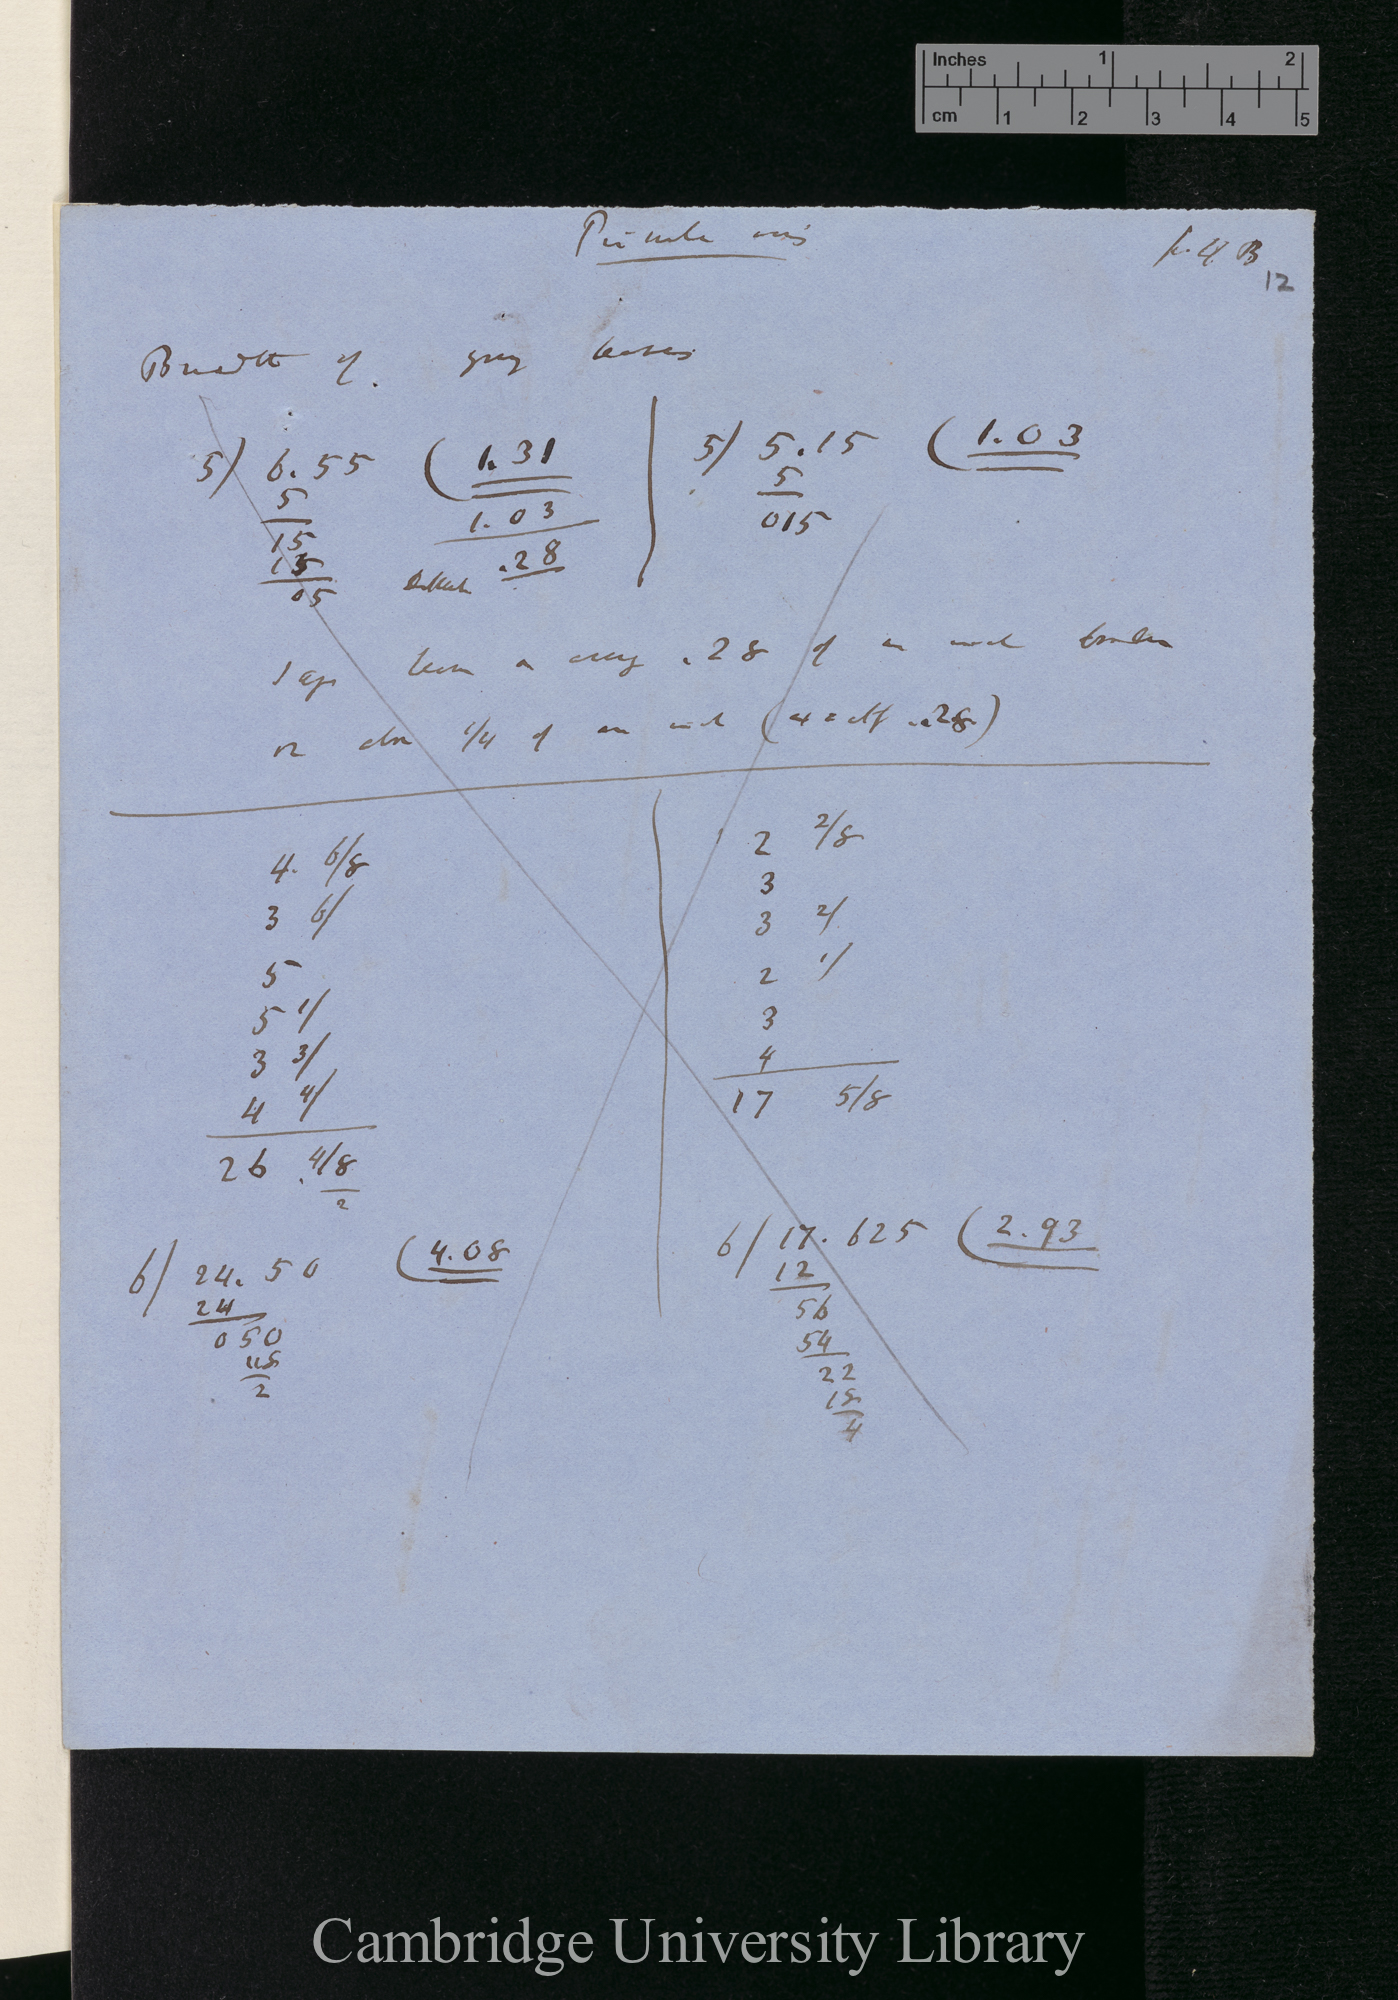 Inches 1 2
cm 1 2 3 4 5
Primula
p. 4 B
12
Breadth of
5) 6.55 (1.31
5
15
15
05
1.03
.28
5) 5.15 (1.03
5
015
.28 of an inch
or 1/4 of an inch ( .28)
4. 6/8
3 6/
5
5 1/
3 3/
4 4/
26 4/8
2
6/ 24.50 (4.08
24
050
48
2
2 2/8
3
3 2/
2 1/
3
4
17 5/8
6/ 17.625 (2.93
12
56
54
22
18
4
Cambridge University Library